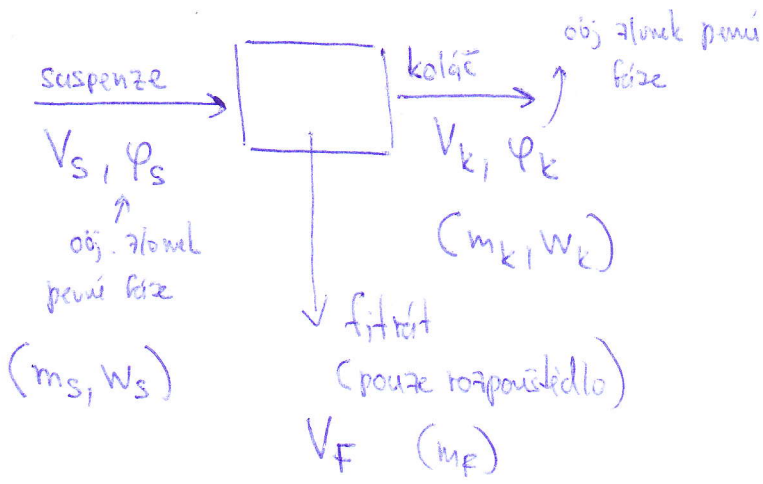 suspenze
V_S, φ_S
obj. zlomek
pevné fáze
(m_S, w_S)
koláč
V_k, φ_k
obj zlomek pevné
fáze
(m_k, w_k)
filtrát
(pouze rozpouštědlo)
V_F (m_F)